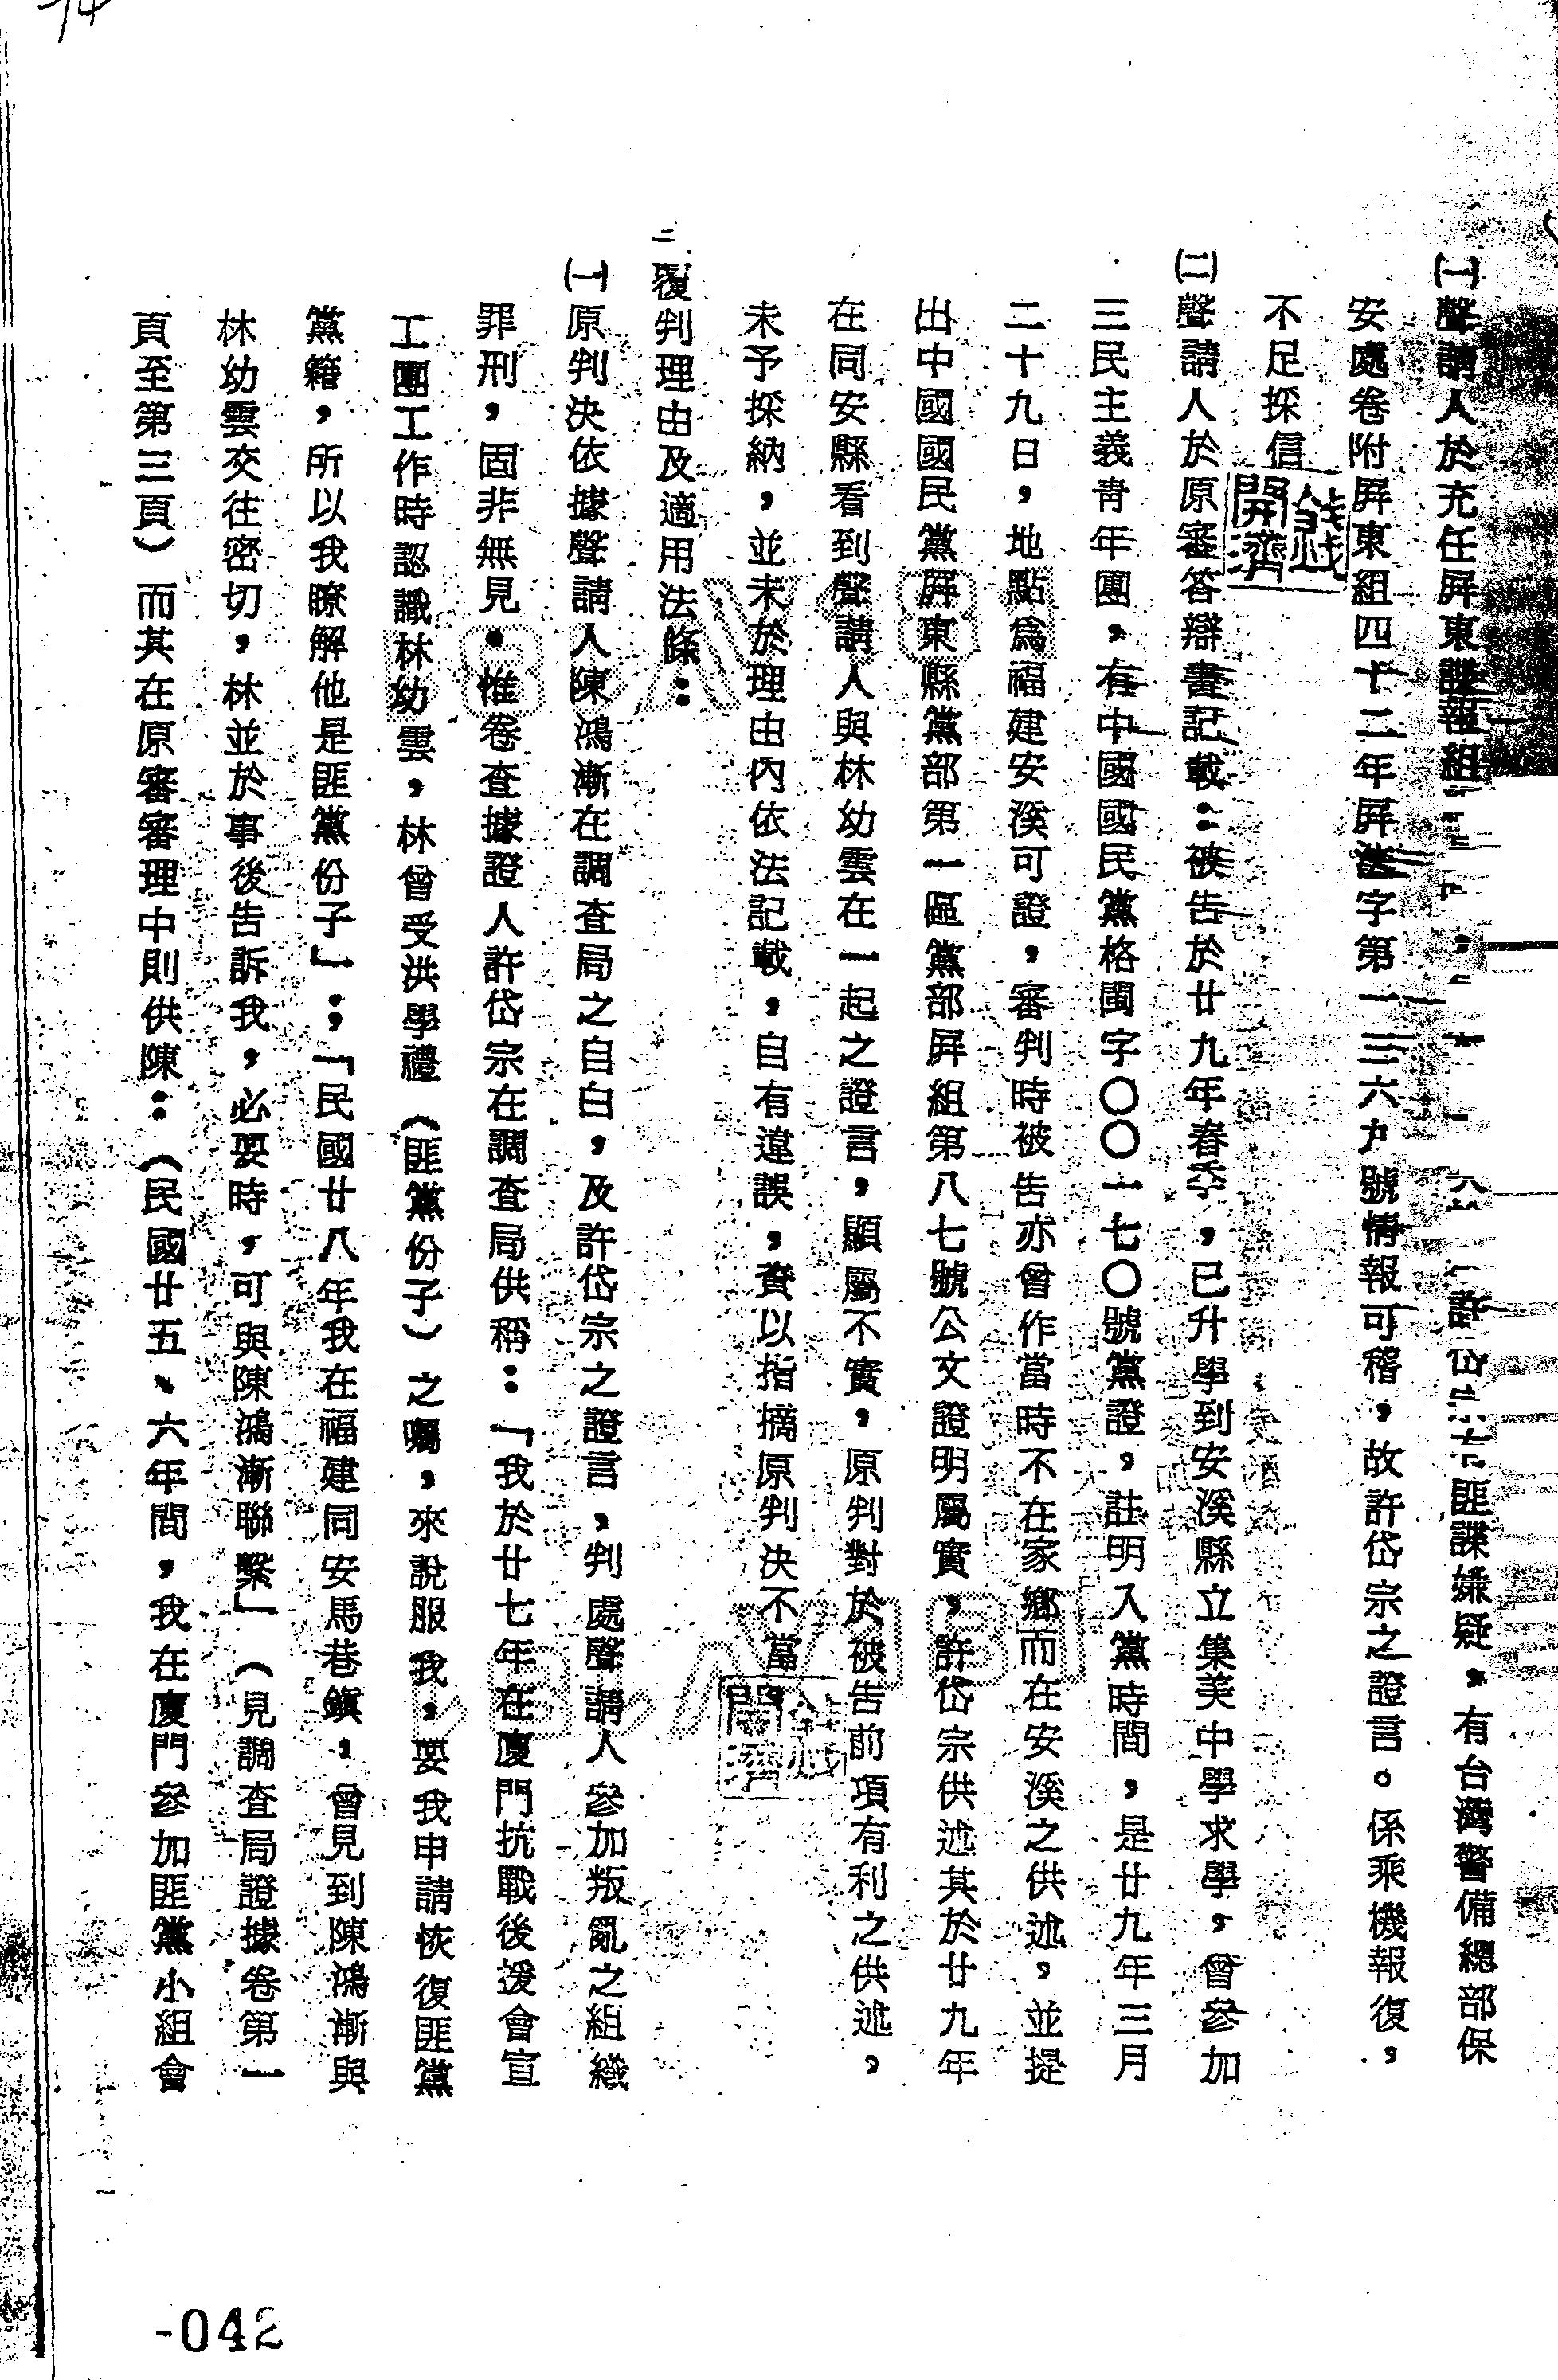 (一)聲請人於充任屏東諜報組
許岱宗有匪諜嫌疑，有台灣警備總部保
安處卷附屏東組四十二年屏
字第一三六九號情報可稽，故許岱宗之證言。係乘機報復，
不足採信
(二)聲請人於原審答辯書記載：被告於廿九年春季，已升學到安溪縣立集美中學求學，曾參加
三民主義青年團，有中國國民黨格閩字〇〇一七〇號黨證，註明入黨時間，是廿九年三月
二十九日，地點為福建安溪可證，審判時被告亦曾作當時不在家鄉而在安溪之供述，並提
出中國國民黨屏東縣黨部第一區黨部屏組第八七號公文證明屬實，許岱宗供述其於廿九年
在同安縣看到聲請人與林幼雲在一起之證言，顯屬不實，原判對於被告前項有利之供述，
未予採納，並未於理由內依法記載，自有違誤，資以指摘原判決不當，
三覆判理由及適用法條：
(一)原判決依據聲請人陳鴻漸在調查局之自白，及許岱宗之證言，判處聲請人參加叛亂之組織
罪刑，固非無見。惟卷查據證人許岱宗在調查局供稱：「我於廿七年在廈門抗戰後援會宣
工團工作時認識林幼雲，林曾受洪學禮（匪黨份子）之囑，來說服我，要我申請恢復匪黨
黨籍，所以我瞭解他是匪黨份子」；「民國廿八年我在福建同安馬巷鎮，曾見到陳鴻漸與
林幼雲交往密切，林並於事後告訴我，必要時，可與陳鴻漸聯繫」（見調查局證據卷第一
頁至第三頁）而其在原審審理中則供陳：（民國廿五、六年間，我在廈門參加匪黨小組會
錢開濟
錢開濟
-042